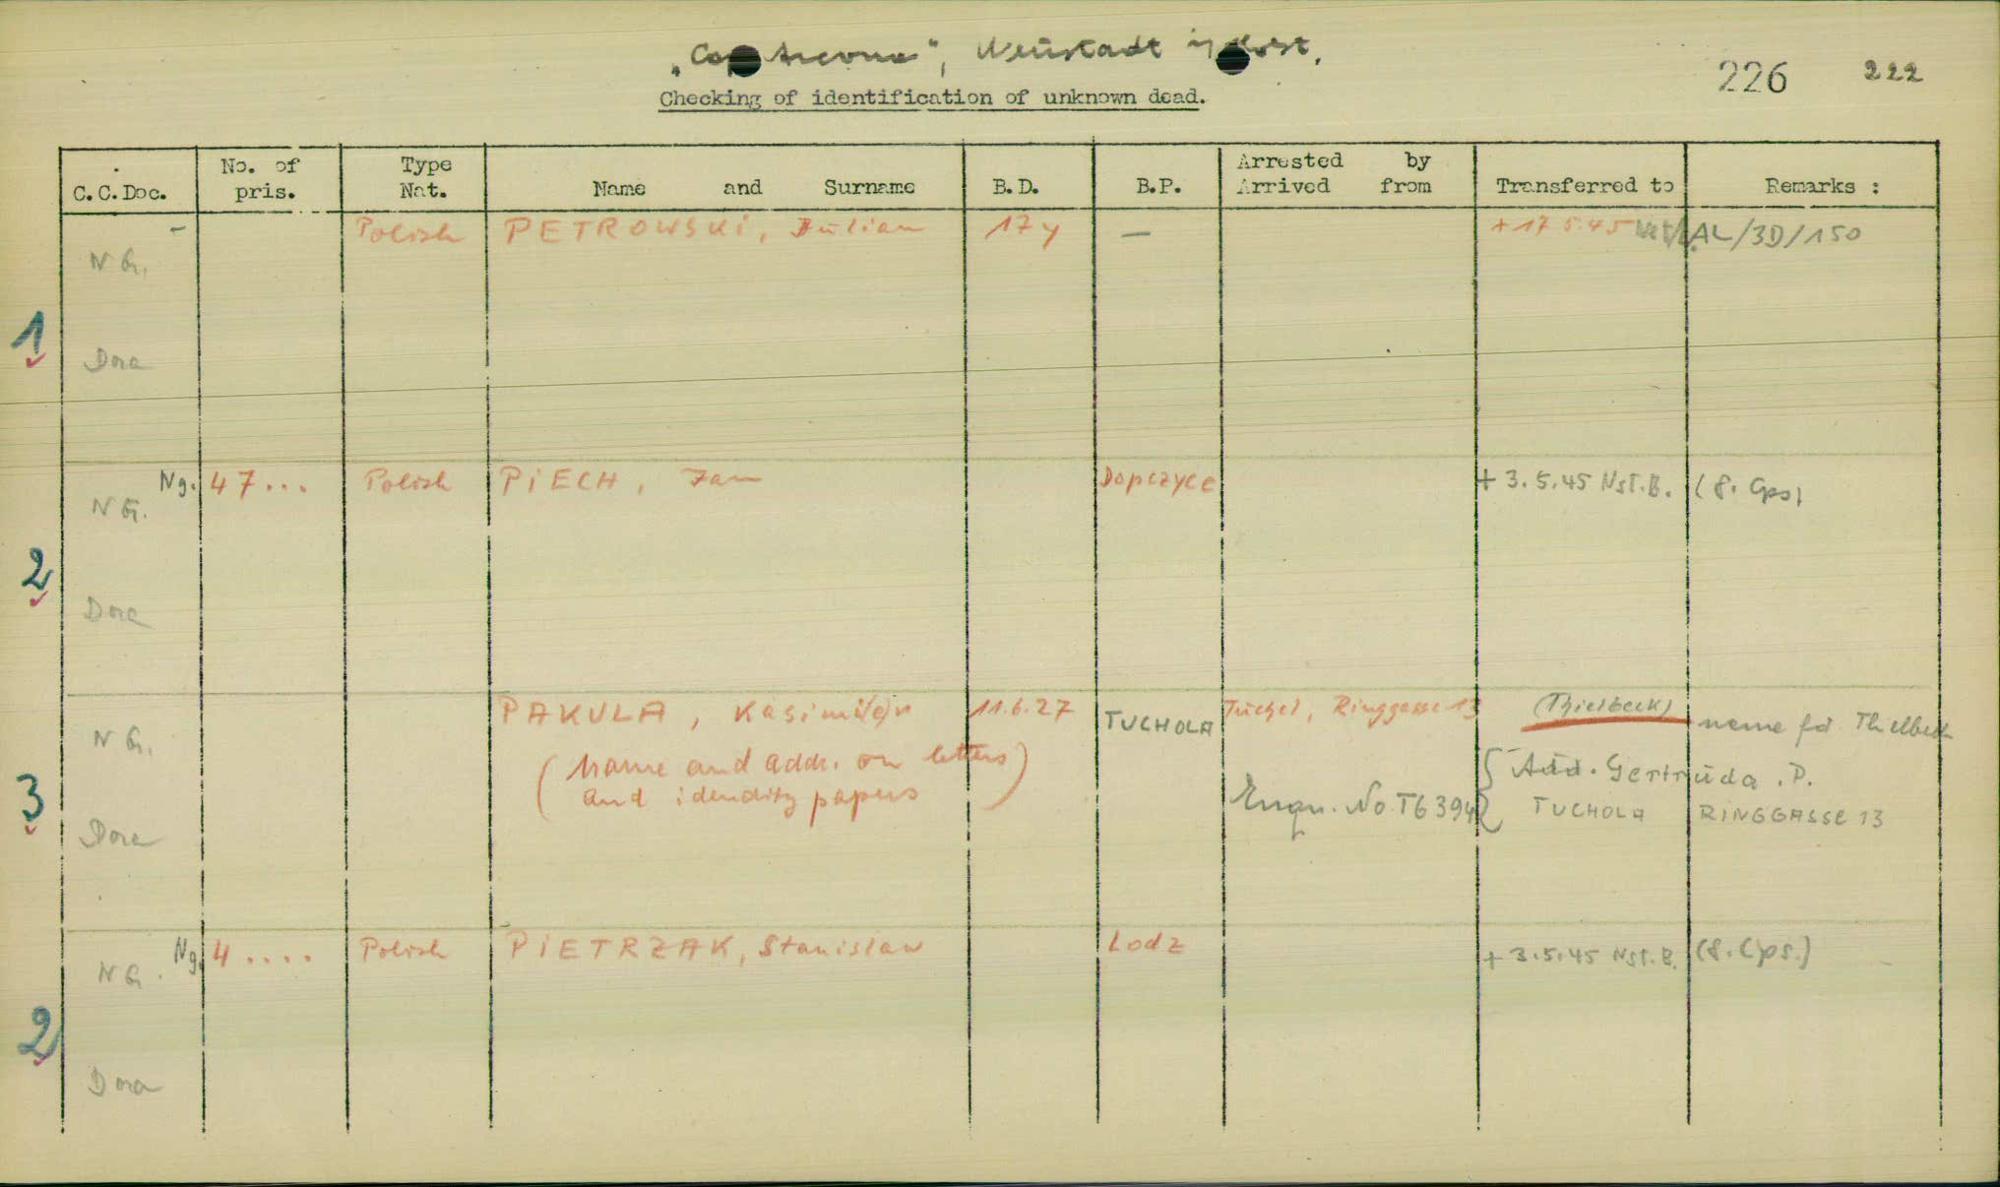 "Cap Arcona", Neustadt i/Holst.
Checking of identification of unknown dead.
226 222
C.C.Doc. No. of pris. Type Nat. Name and Surname B.D. B.P. Arrested by Arrived from Transferred to Remarks :
1
- Polish PETROWSKI, Julian 17 y — + 17.5.45 AL/3D/150
NG.
Dora
2
Ng. 47... Polish PIECH, Jan Dopczyce + 3.5.45 Nst.B. (8. Cps)
NG.
Dora
3
PAKULA, Kasimi(e)r 11.6.27 TUCHOLA Tuchel, Ringgasse 13 (Thielbeck) name fd. Thielbeck
NG.
(Name and addr. on letters
and idendity papers)
Enqu. No. T6394 { Add. Gertruda .P.
TUCHOLA RINGGASSE 13
Dora
2
Ng. 4.... Polish PIETRZAK, Stanislaw Lodz + 3.5.45 Nst.B. (8. Cps.)
NG.
Dora